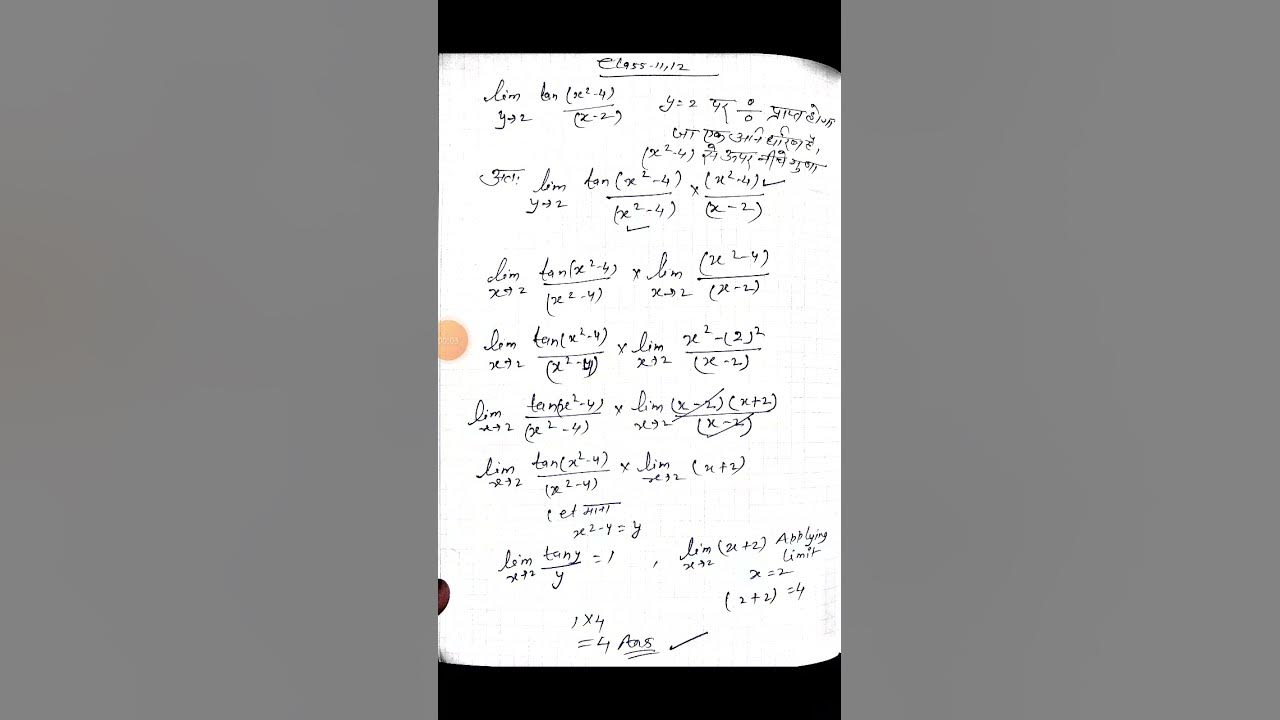 Class-11,12
lim y→2 tan(x²-4)/(x-2) y=2 पर 0/0 प्राप्त होगा
जो एक अनिर्धारित है,
(x²-4) से ऊपर नीचे गुणा
अतः lim y→2 tan(x²-4)/(x²-4) × (x²-4)/(x-2)
lim x→2 tan(x²-4)/(x²-4) × lim x→2 (x²-4)/(x-2)
lim x→2 tan(x²-4)/(x²-4) × lim x→2 x²-(2)²/(x-2)
lim x→2 tan(x²-4)/(x²-4) × lim x→2 (x-2)(x+2)/(x-2)
lim x→2 tan(x²-4)/(x²-4) × lim x→2 (x+2)
let माना
x²-4=y
lim x→2 tany/y =1 , lim x→2 (x+2) Applying
Limit
x=2
(2+2)=4
1×4
=4 Ans
00:03